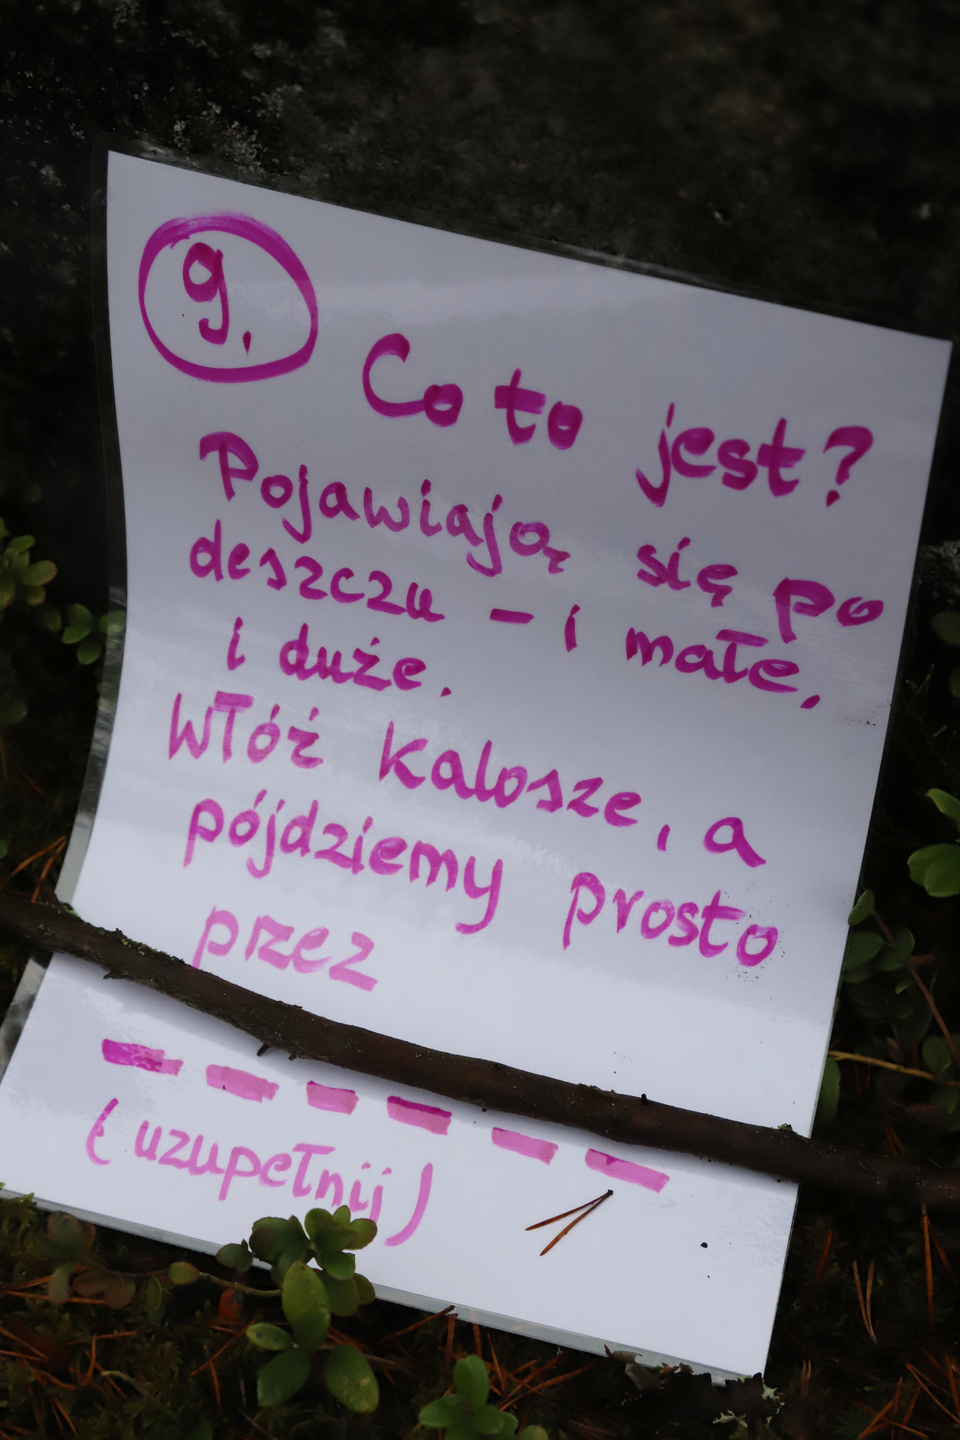 9.
Co to jest?
Pojawiają się po
deszczu - i małe,
i duże.
Włóż kalosze, a
pójdziemy prosto
przez
_ _ _ _ _ _
(uzupełnij)